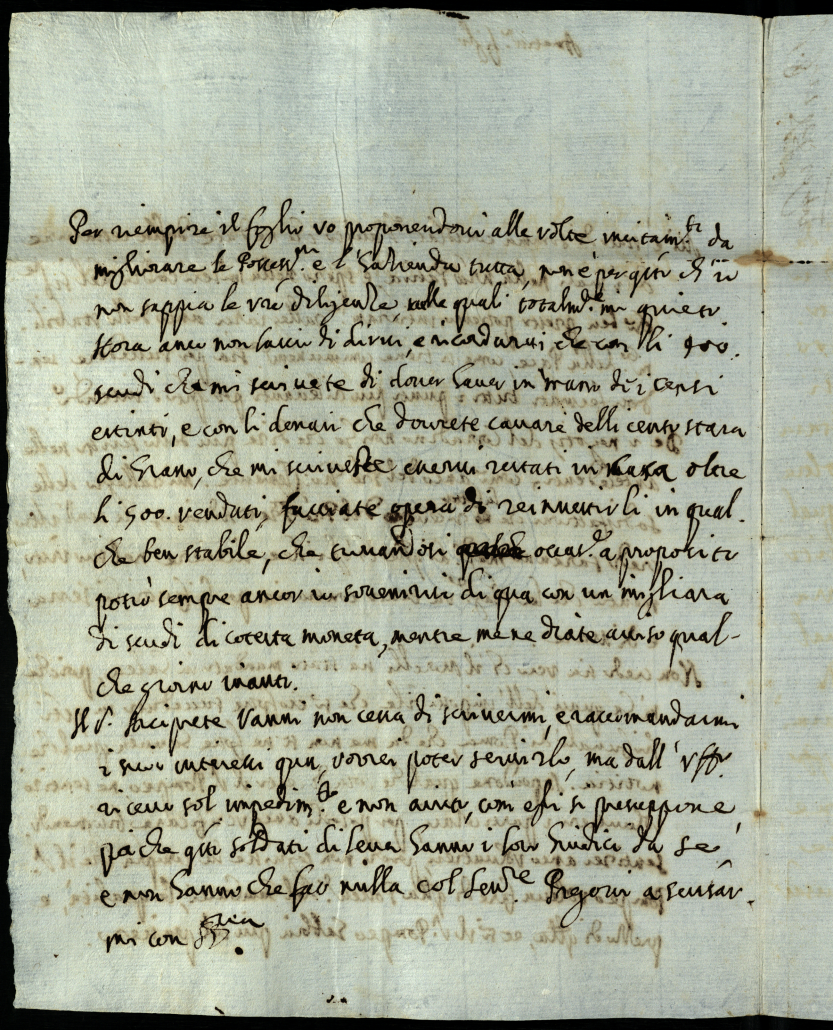 Per riempire il foglio vo proponendovi alle volte incitam.ti da
migliorare le Possess.ni e l'Hazienda tutta, non è per q̃sto ch'io
non sappia le vr̃e diligenze, nelle quali totalm.te mi quieto
stora anco non lascio di dirvi, e ricordarvi che con li 900.
scudi che mi scrivete di dover haver in mano di i censi
estinti, e con li denari che dovrete cavare delli cento stara
di Grano, che mi scriveste esservi restati in Casa oltre
li 500. venduti, facciate opera di reinvestirli in qual-
che ben stabile, che trovandosi occas.e a proposito
potrò sempre ancor io sovenirvi di qua con un migliara
di scudi di cotesta moneta, mentre me ne diate aviso qual-
che giorno inanti.
Il S.r Arciprete Vanni non cessa di scrivermi, e raccomandarmi
i suoi interessi qua, vorrei poter servirlo, ma dall'
ricevo sol impedim.to e non aiuto, com'essi si presuppone,
poiche q̃sti soldati di leva hanno i loro Giudici da se,
e non hanno che far nulla col Sen.re Pregovi a scusar-
mi con